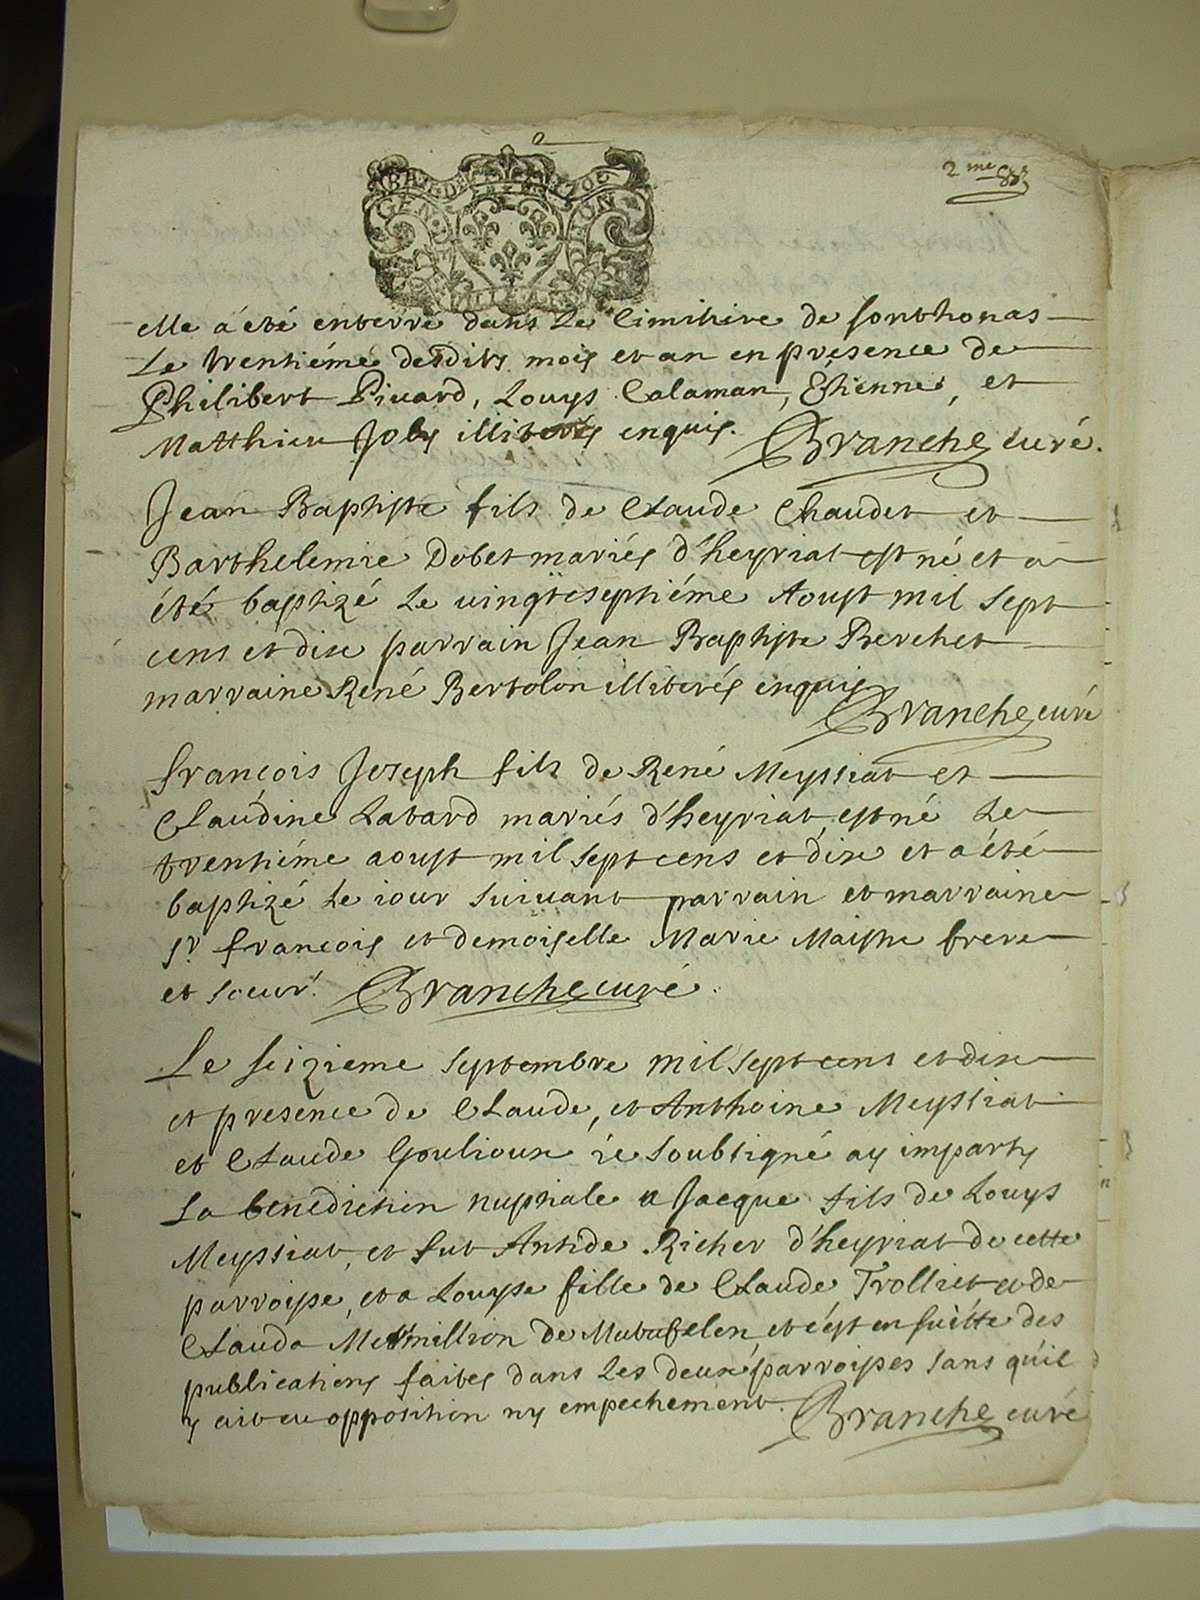 2 me
GEN ON
elle a été enterré dans le Cimitiere de sonthonas
le trentiéme desdits mois et an en presence de
Philibert Pivard, Louys Calaman, Etienne, et
Matthieu Joly illiterés enquis. Branche curé.
Jean Baptiste fils de Claude Chaudet et
Barthelemie Dobet mariés d'heyriat est né et a
été baptizé le vingtseptiéme Aoust mil sept
cens et dix parrain Jean Baptiste Berchet
marraine René Bertolon illiterés enquis
Branche curé
francois Joseph fils de René Meyssiat et
Claudine Labard mariés d'heyriat, est né le
trentiéme aoust mil sept cens et dix et a été
baptizé le iour suivant parrain et marraine
Sr. francois et demoiselle Marie Maistre frere
et soeur. Branche curé.
Le seizieme septembre mil sept cens et dix
et presence de Claude, et Anthoine Meyssiat
et Claude Goulioux ie soubsigné ay imparty
la benediction nuptiale a Jacque fils de Louys
Meyssiat, et fut Antide Richer d'heyriat de cette
parroisse, et a Louyse fille de Claude Trolliet et de
Clauda Mermillion de Matafelon, et c'est en suitte des
publications faites dans les deux parroisses sans qu'il
y ait eu opposition ny empechement. Branche curé